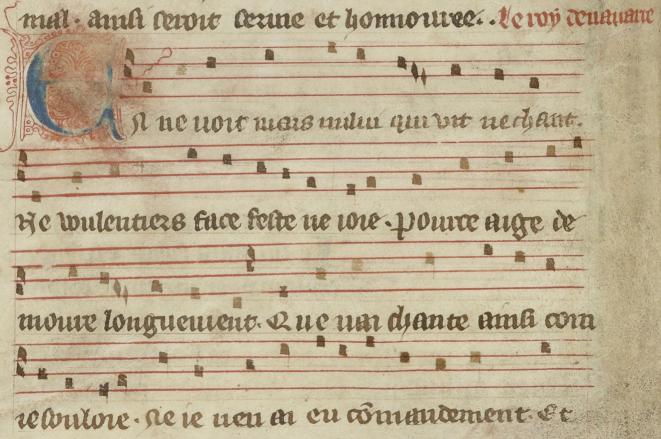 mal. ainsi seroit seruie et honnouree. . Le roy de nauarre
En ne voit mais nului qui rit ne chant.
Ne woulentiers face feste ne ioie. Pource ai ge de
moure longuement. Que nai chante ainsi com
ie souloie. Ne ie nen ai eu cōmandement. Et